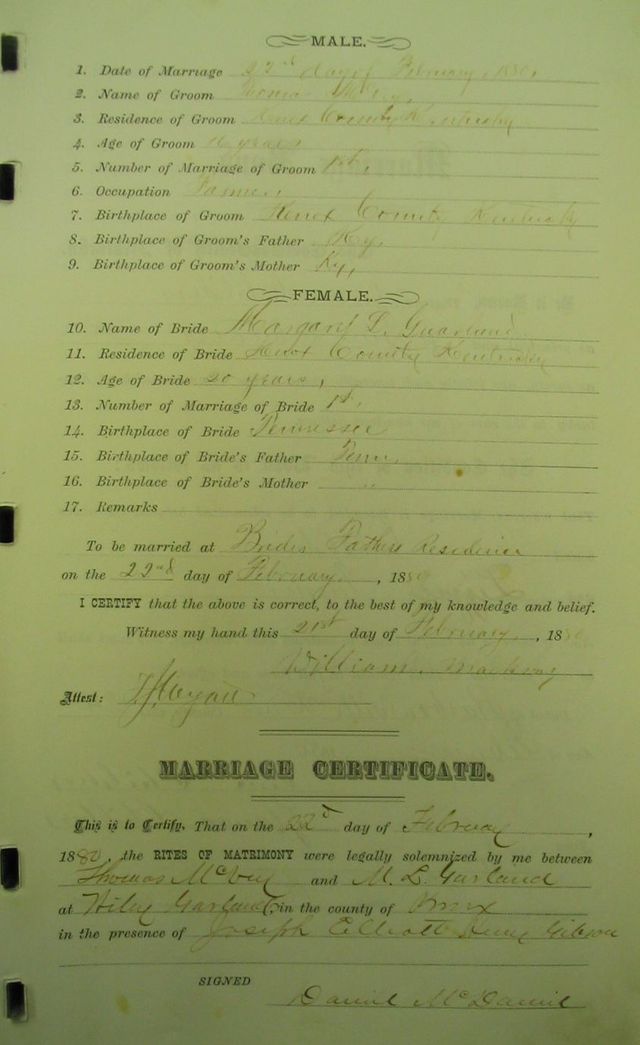 MALE.
1. Date of Marriage 22nd day of February, 1880,
2. Name of Groom
3. Residence of Groom Knox County Kentucky
4. Age of Groom years
5. Number of Marriage of Groom 1st,
6. Occupation Farmer,
7. Birthplace of Groom Knox County Kentucky
8. Birthplace of Groom's Father Ky,
9. Birthplace of Groom's Mother Ky,
FEMALE.
10. Name of Bride L.
11. Residence of Bride Knox County Kentucky
12. Age of Bride 20 years,
13. Number of Marriage of Bride 1st,
14. Birthplace of Bride Tennessee
15. Birthplace of Bride's Father Tenn,
16. Birthplace of Bride's Mother "
17. Remarks
To be married at Brides Fathers Residence
on the 22nd day of February, 1880
I CERTIFY that the above is correct, to the best of my knowledge and belief.
Witness my hand this 21st day of February, 1880
William
Attest:
MARRIAGE CERTIFICATE.
This is to Certify, That on the 22d day of February,
1880, the RITES OF MATRIMONY were legally solemnized by me between
Thomas McVey and M. L. Garland
at Garlands, in the county of Knox
in the presence of Joseph Elliott Gibson
SIGNED
Daniel McDaniel